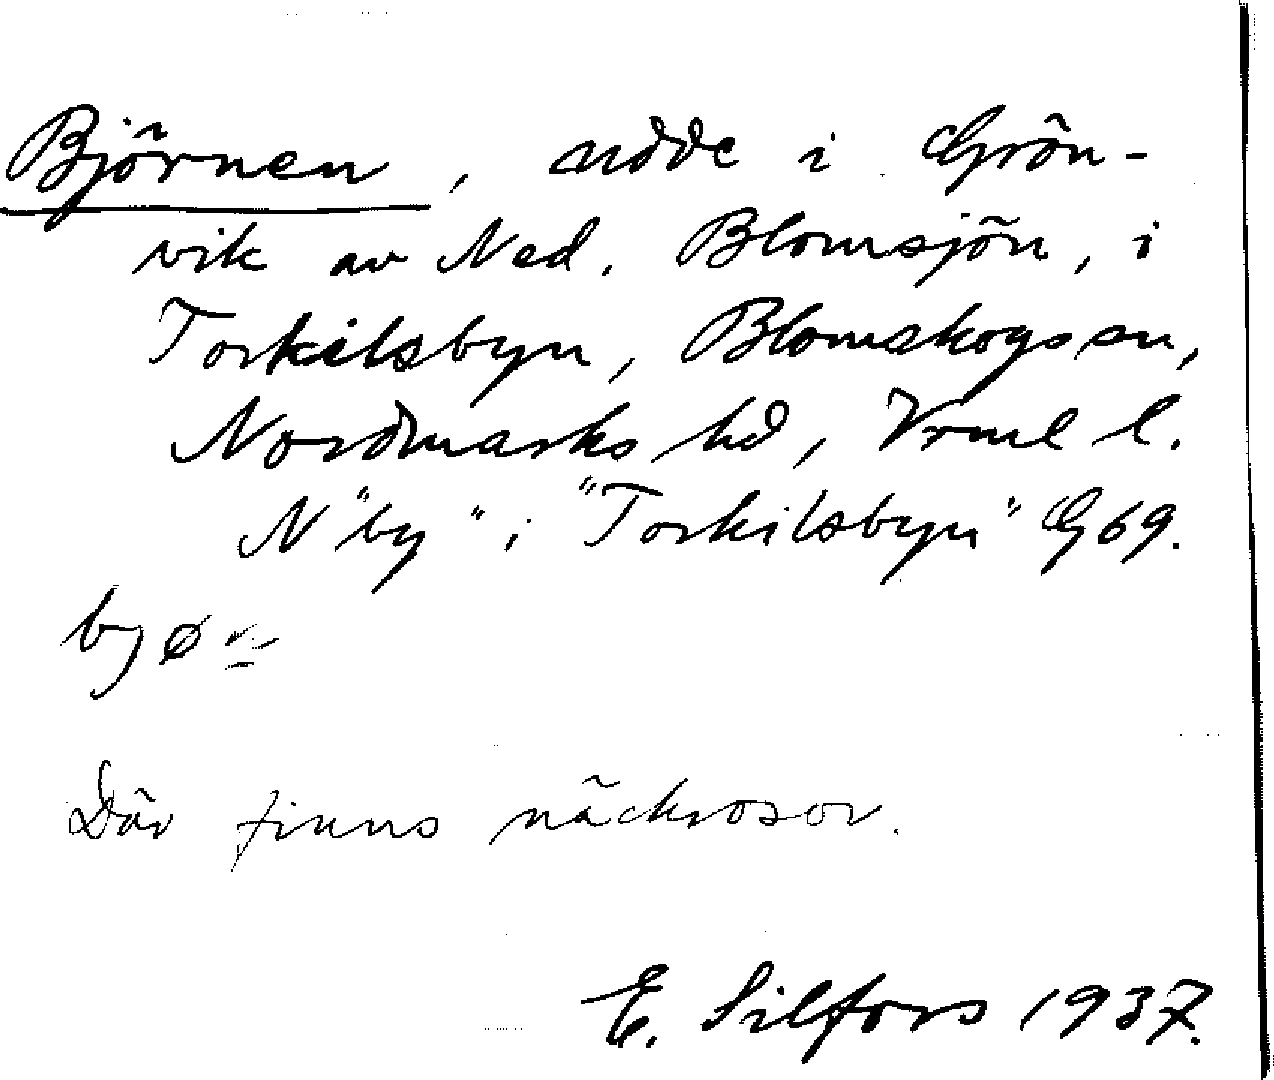 Björnen, udde i Grön-
vik av Ned. Blomsjön, i
Torkilsbyn, Blomskogs sn,
Nordmarks hd, Vrml l.
N "by" i "Torkilsbyn" G 69.
by ø
Där finns näckrosor.
E. Silfors 1937.